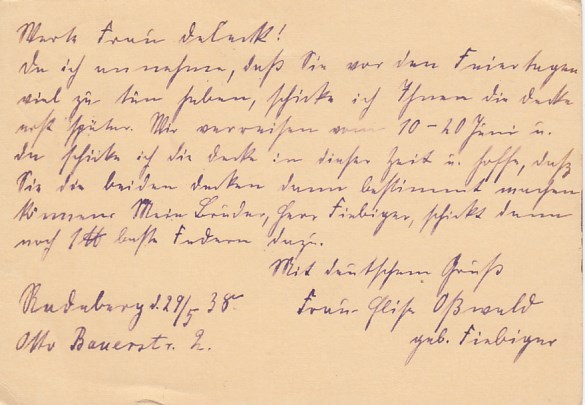 Werte Frau Deleckt!
Da ich annehme, daß Sie vor den Feiertagen
viel zu tun haben, schicke ich Ihnen die Decke
erst später. Wir verreisen vom 10–20 Juni u.
da schicke ich die Decke in dieser Zeit u. hoffe, daß
Sie die beiden Decken dann bestimmt machen
können. Mein Bruder, Herr Fiebiger, schickt dann
noch 1 ℔ beste Federn dazu.
Mit deutschem Gruß
Radeberg d. 29/5 38. Frau Elise Oßwald
Otto Bauerstr. 2. geb. Fiebiger